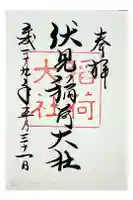 奉拝
伏見稲荷大社
平成二十九年五月三十一日
稲荷
大社